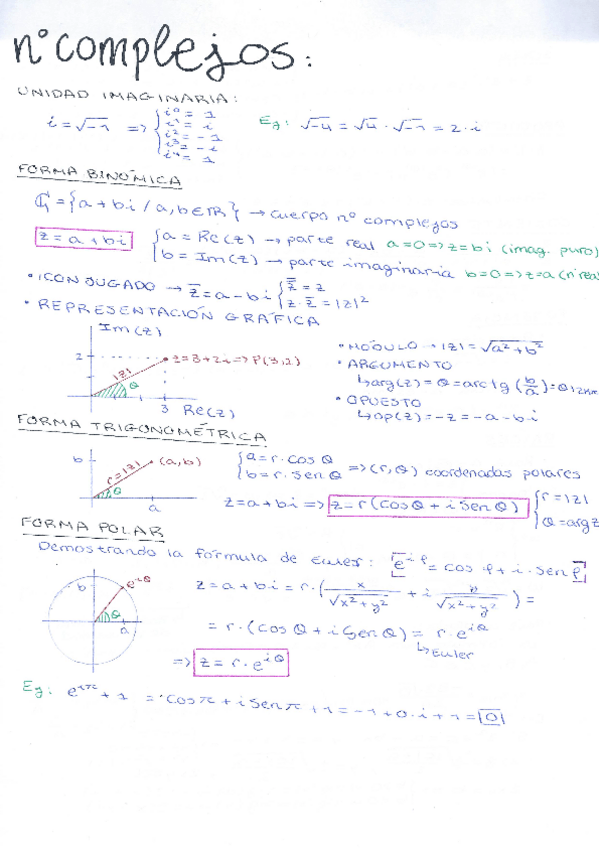 nº complejos:
UNIDAD IMAGINARIA:
i = √-1 => { i⁰ = 1
i¹ = i
i² = -1
i³ = -i
i⁴ = 1
Eg: √-4 = √4 · √-1 = 2 · i
FORMA BINÓMICA
ℂ = {a + bi / a, b ∈ ℝ} → cuerpo nº complejos
z = a + bi { a = Re(z) → parte real a = 0 => z = bi (imag. puro)
b = Im(z) → parte imaginaria b = 0 => z = a (nº real
• CONJUGADO → z̄ = a - bi { z̿ = z
z · z̄ = |z|²
• REPRESENTACIÓN GRÁFICA
Im(z)
2
|z|
z = 3 + 2i => P(3,2)
θ
1
3
Re(z)
• MÓDULO → |z| = √a² + b²
• ARGUMENTO
↳ arg(z) = θ = arc tg (b/a) = θ
• OPUESTO
↳ op(z) = -z = -a - bi
FORMA TRIGONOMÉTRICA
b
r = |z|
(a, b)
θ
a
{ a = r · cos θ
b = r · sen θ => (r, θ) coordenadas polares
z = a + bi => z = r (cos θ + i sen θ) { r = |z|
θ = arg z
FORMA POLAR
Demostrando la fórmula de Euler: e^iφ = cos φ + i · sen φ
b
e^iθ
θ
a
z = a + bi = r · (x/√x² + y² + i y/√x² + y²) =
= r · (cos θ + i sen θ) = r · e^iθ
↳ Euler
=> z = r · e^iθ
Eg: e^iπ + 1 = cos π + i sen π + 1 = -1 + 0 · i + 1 = 0